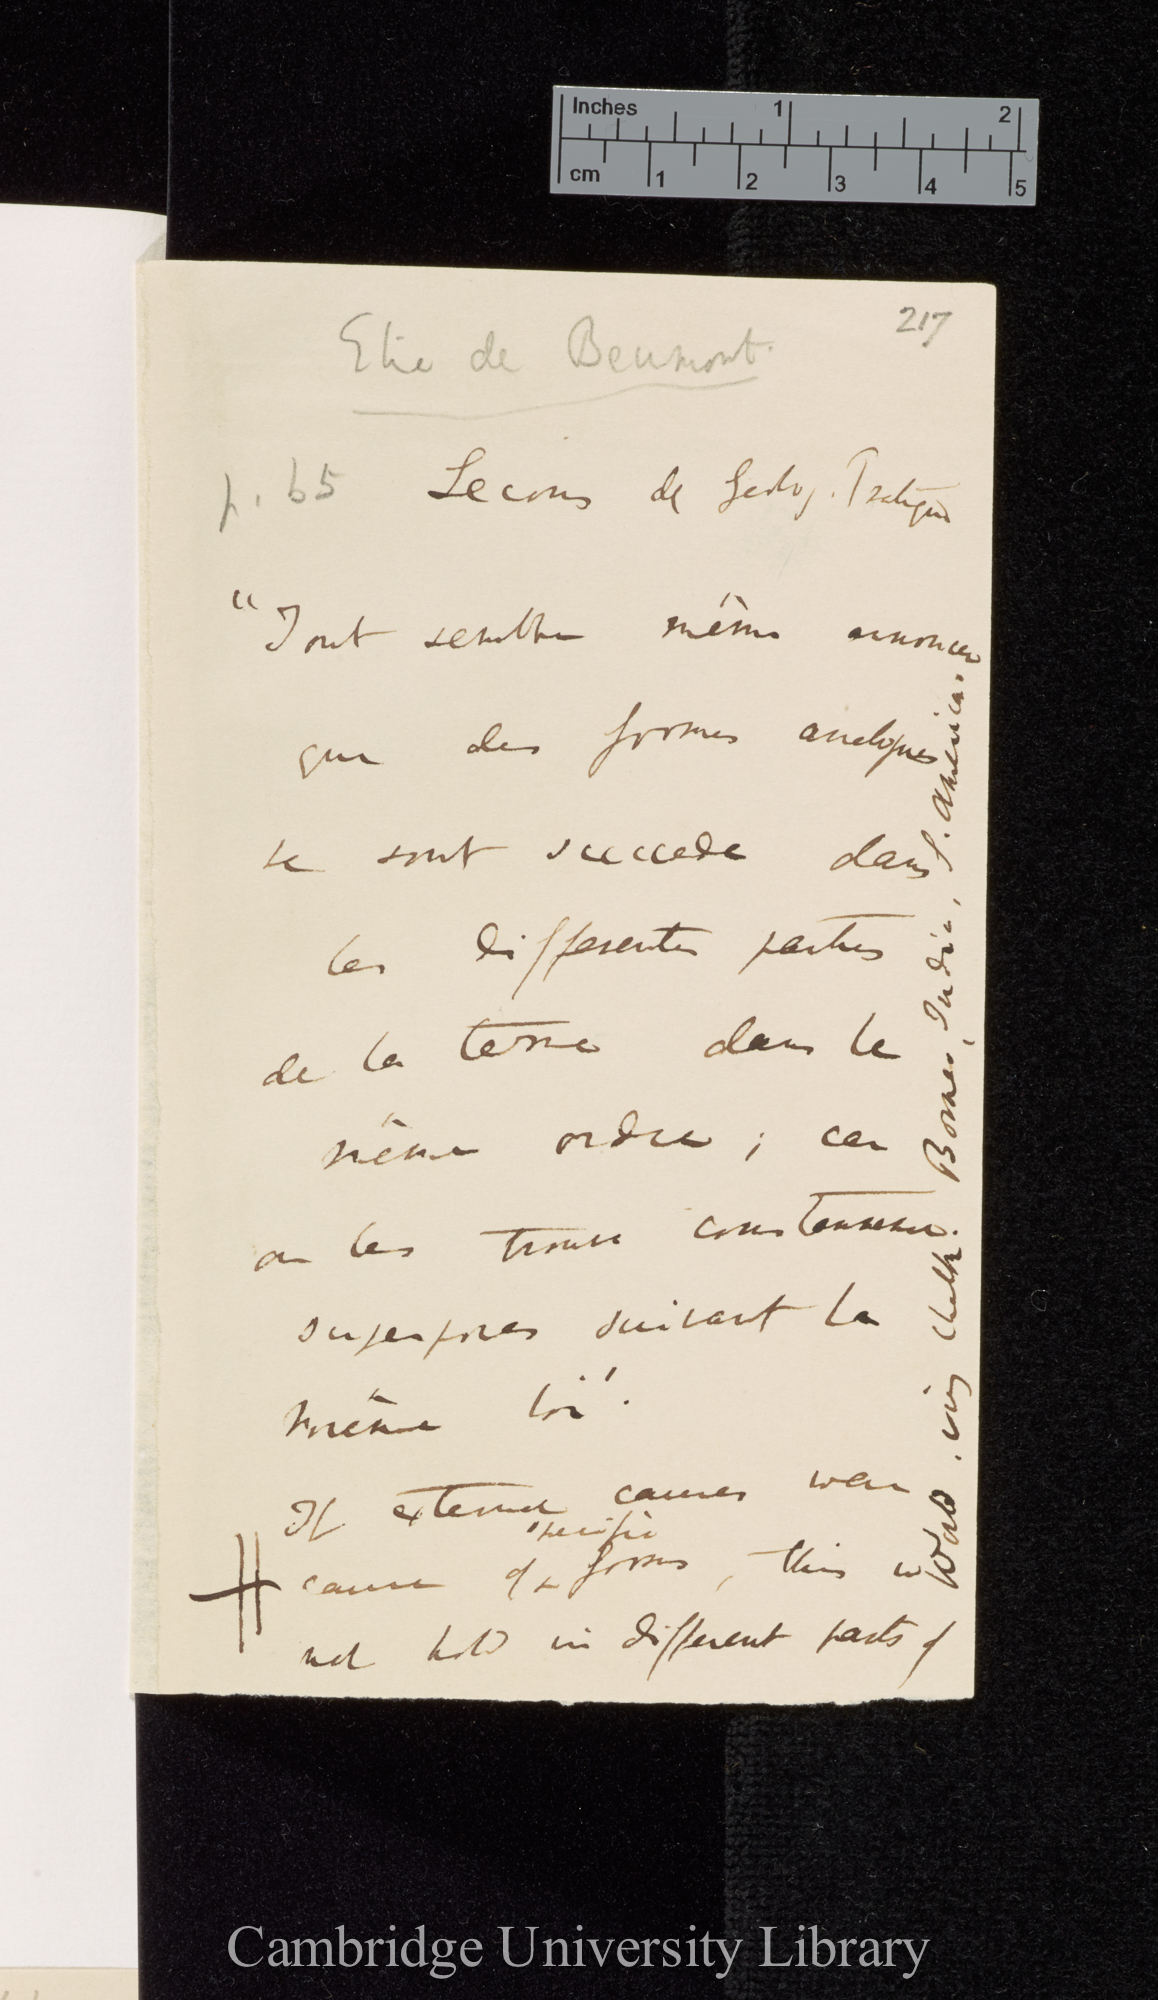 Inches 1 2
cm 1 2 3 4 5
217
Elie de Beaumont
p. 65 Lecons de Geolog. Pratique
"Tout semble même annoncer
que des formes analogues
se sont succede dans
les differentes parties
de la terre dans le
même ordre; car
on les trouve constamment
superposes suivant la
même loi".
If external causes were
specific
cause of forms, this wd
not hold in different parts of
World. viz Chalk Borneo, India, S. America.
Cambridge University Library